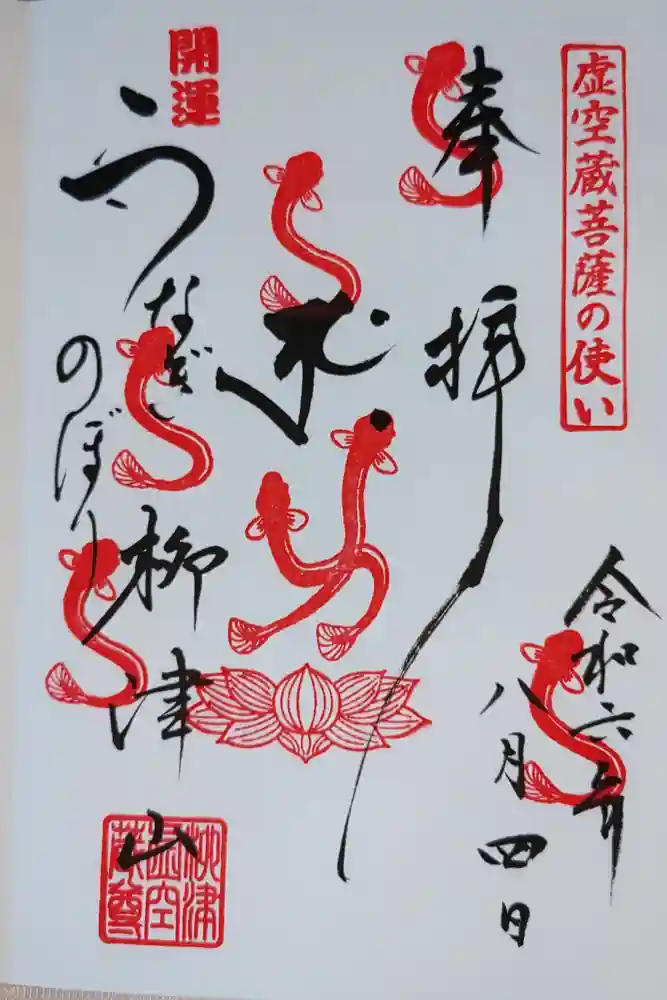 虚空蔵菩薩の使い
奉拝
令和六年
八月四日
開運
うなぎ
のぼり
柳津
山
柳津
虚空
蔵尊